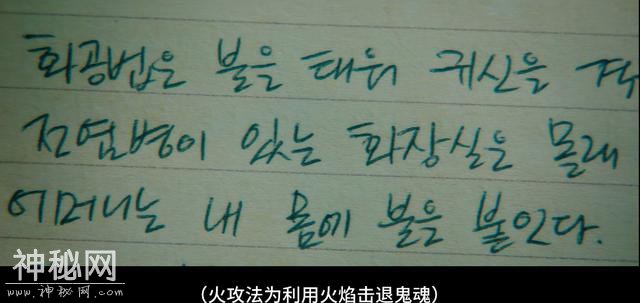 화공법은 불을 태워 귀신을
전염병이 있는 화장실은 몰래
어머니는 내 몸에 불을 붙인다.
神秘网
www.神秘网.com
(火攻法为利用火焰击退鬼魂)